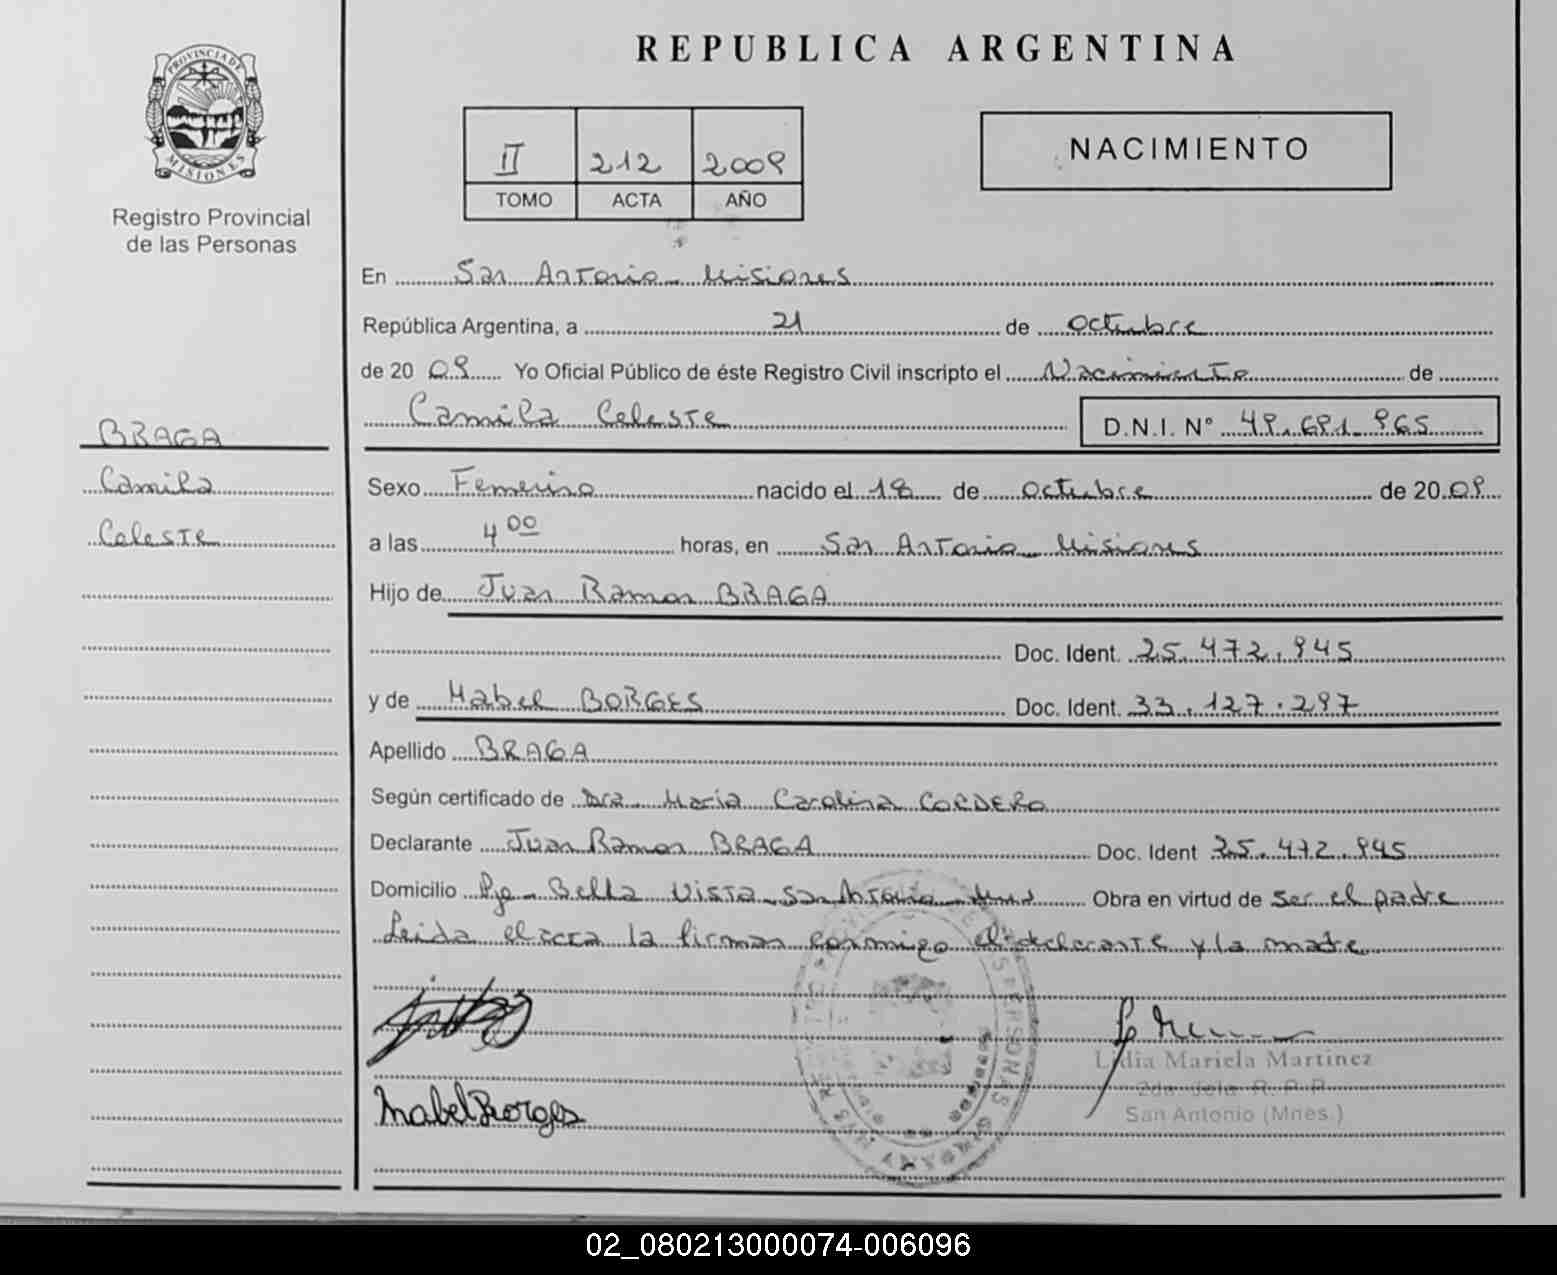 REPUBLICA ARGENTINA
PROVINCIA DE MISIONES
Registro Provincial
de las Personas
II 212 2009
TOMO ACTA AÑO
NACIMIENTO
En San Antonio - Misiones
República Argentina, a 21 de octubre
de 20 09 Yo Oficial Público de éste Registro Civil inscripto el Nacimiento de
Camila Celeste D.N.I. N° 49.691.965
BRAGA
Camila
Celeste
Sexo Femenino nacido el 18 de octubre de 20 09
a las 4 00 horas, en San Antonio - Misiones
Hijo de Juan Ramon BRAGA
Doc. Ident. 25.472.945
y de Mabel BORGES Doc. Ident. 33.127.297
Apellido BRAGA
Según certificado de Dra. Maria Carolina CORDERO
Declarante Juan Ramon BRAGA Doc. Ident 25.472.945
Domicilio Pje - Bella Vista - San Antonio - Mnes Obra en virtud de ser el padre
Leida el acta la firman conmigo el declarante y la madre
Mabel Borges
Lidia Mariela Martinez
2da. Jefa R. P. P.
San Antonio (Mnes.)
02_080213000074-006096